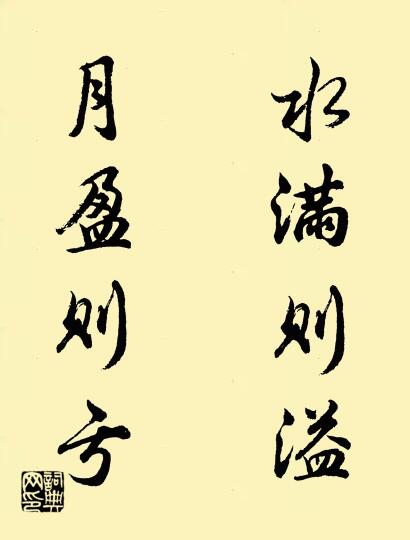 水满则溢
月盈则亏
詞典网印